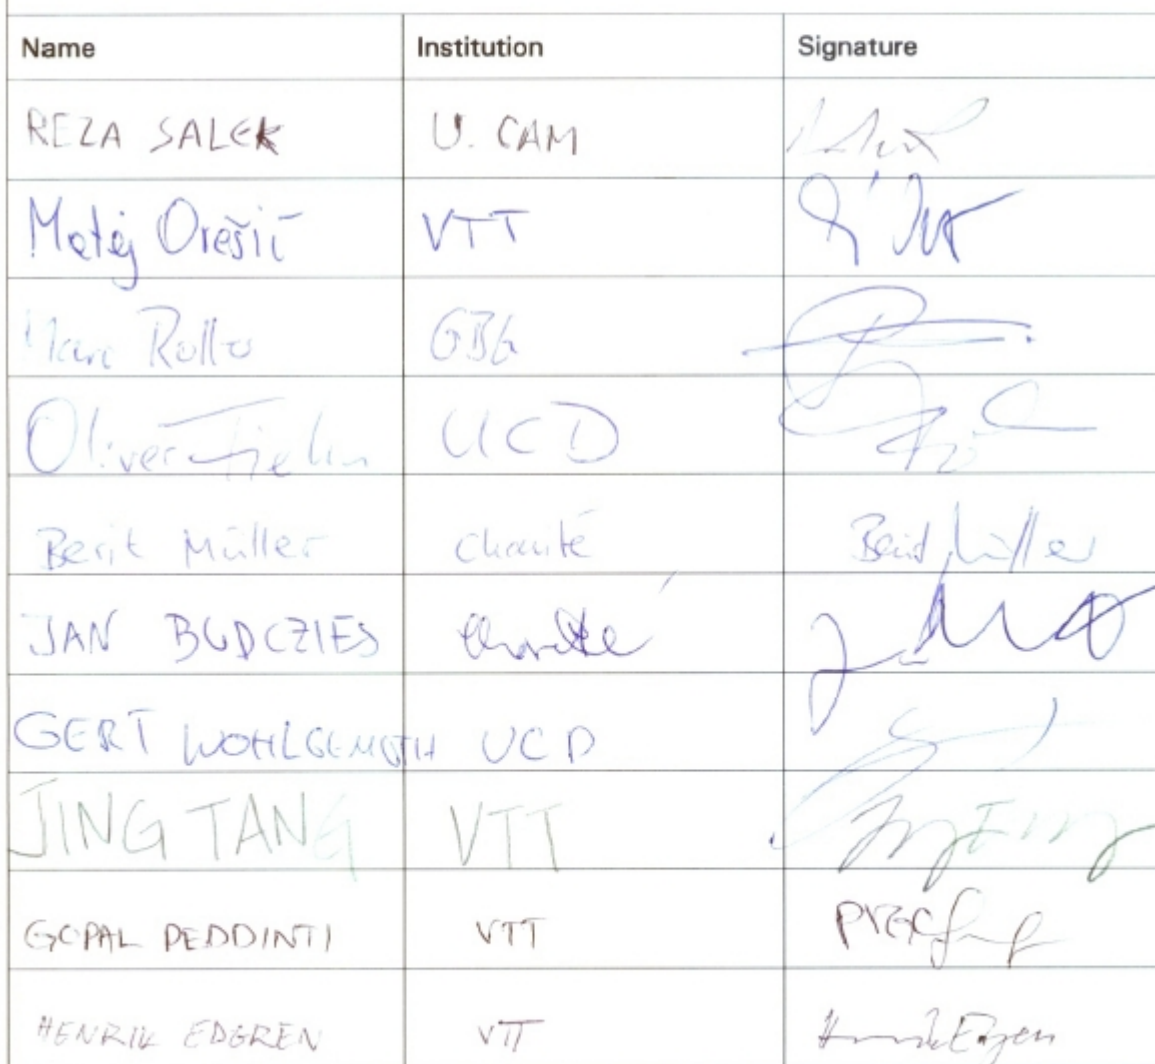 Name Institution Signature
REZA SALEK U. CAM
Matej Orešič VTT
Marc Rollo GBG
Oliver Fiehn UCD
Berit Müller Charité Berit Müller
JAN BUDCZIES Charité
GERT WOHLGEMUTH UCD
JING TANG VTT
GOPAL PEDDINTI VTT
HENRIK EDGREN VTT Henrik Edgren